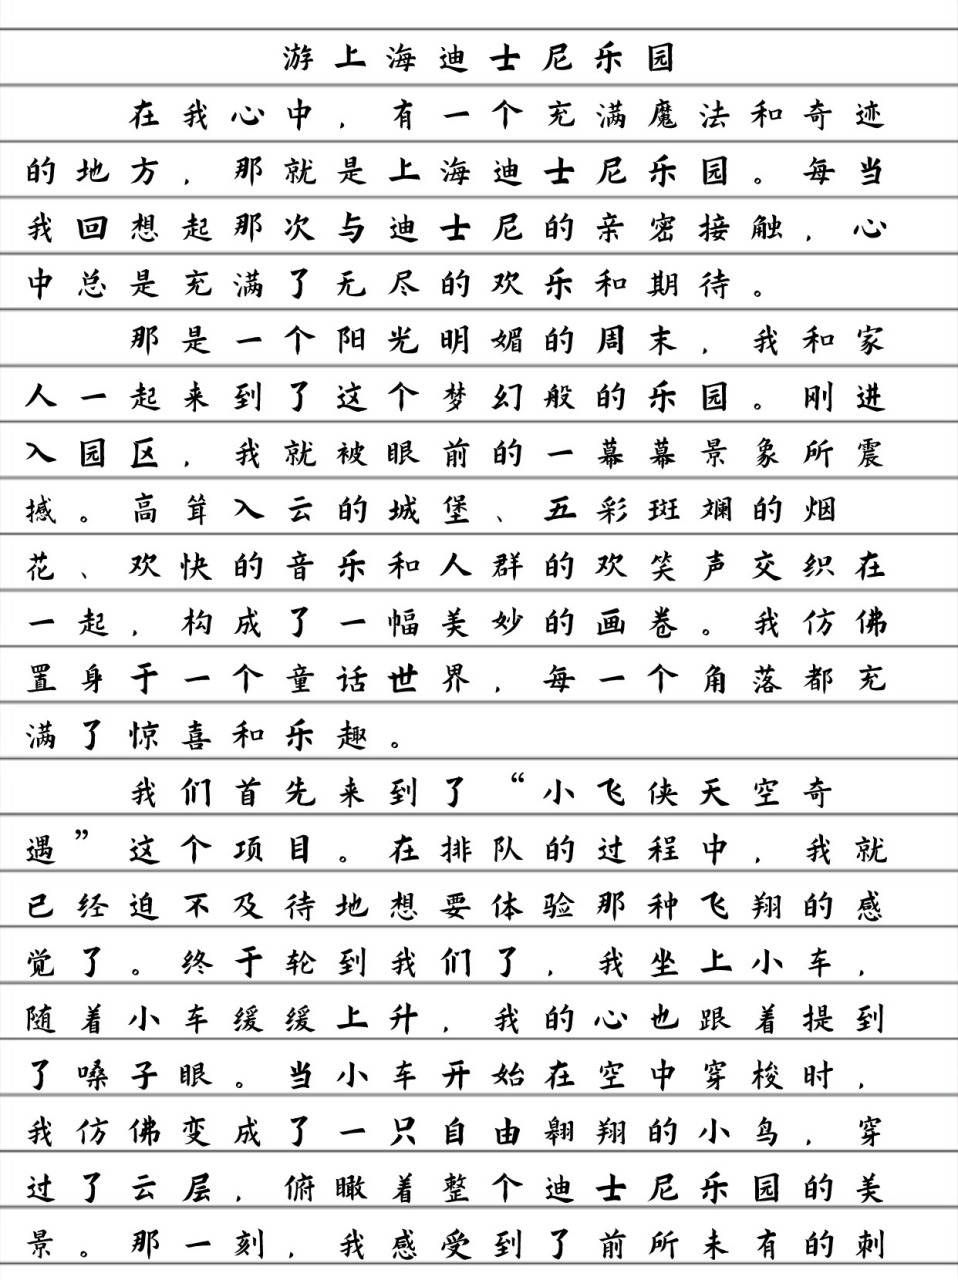 游上海迪士尼乐园
在我心中，有一个充满魔法和奇迹
的地方，那就是上海迪士尼乐园。每当
我回想起那次与迪士尼的亲密接触，心
中总是充满了无尽的欢乐和期待。
那是一个阳光明媚的周末，我和家
人一起来到了这个梦幻般的乐园。刚进
入园区，我就被眼前的一幕幕景象所震
撼。高耸入云的城堡、五彩斑斓的烟
花、欢快的音乐和人群的欢笑声交织在
一起，构成了一幅美妙的画卷。我仿佛
置身于一个童话世界，每一个角落都充
满了惊喜和乐趣。
我们首先来到了“小飞侠天空奇
遇”这个项目。在排队的过程中，我就
已经迫不及待地想要体验那种飞翔的感
觉了。终于轮到我们了，我坐上小车，
随着小车缓缓上升，我的心也跟着提到
了嗓子眼。当小车开始在空中穿梭时，
我仿佛变成了一只自由翱翔的小鸟，穿
过了云层，俯瞰着整个迪士尼乐园的美
景。那一刻，我感受到了前所未有的刺